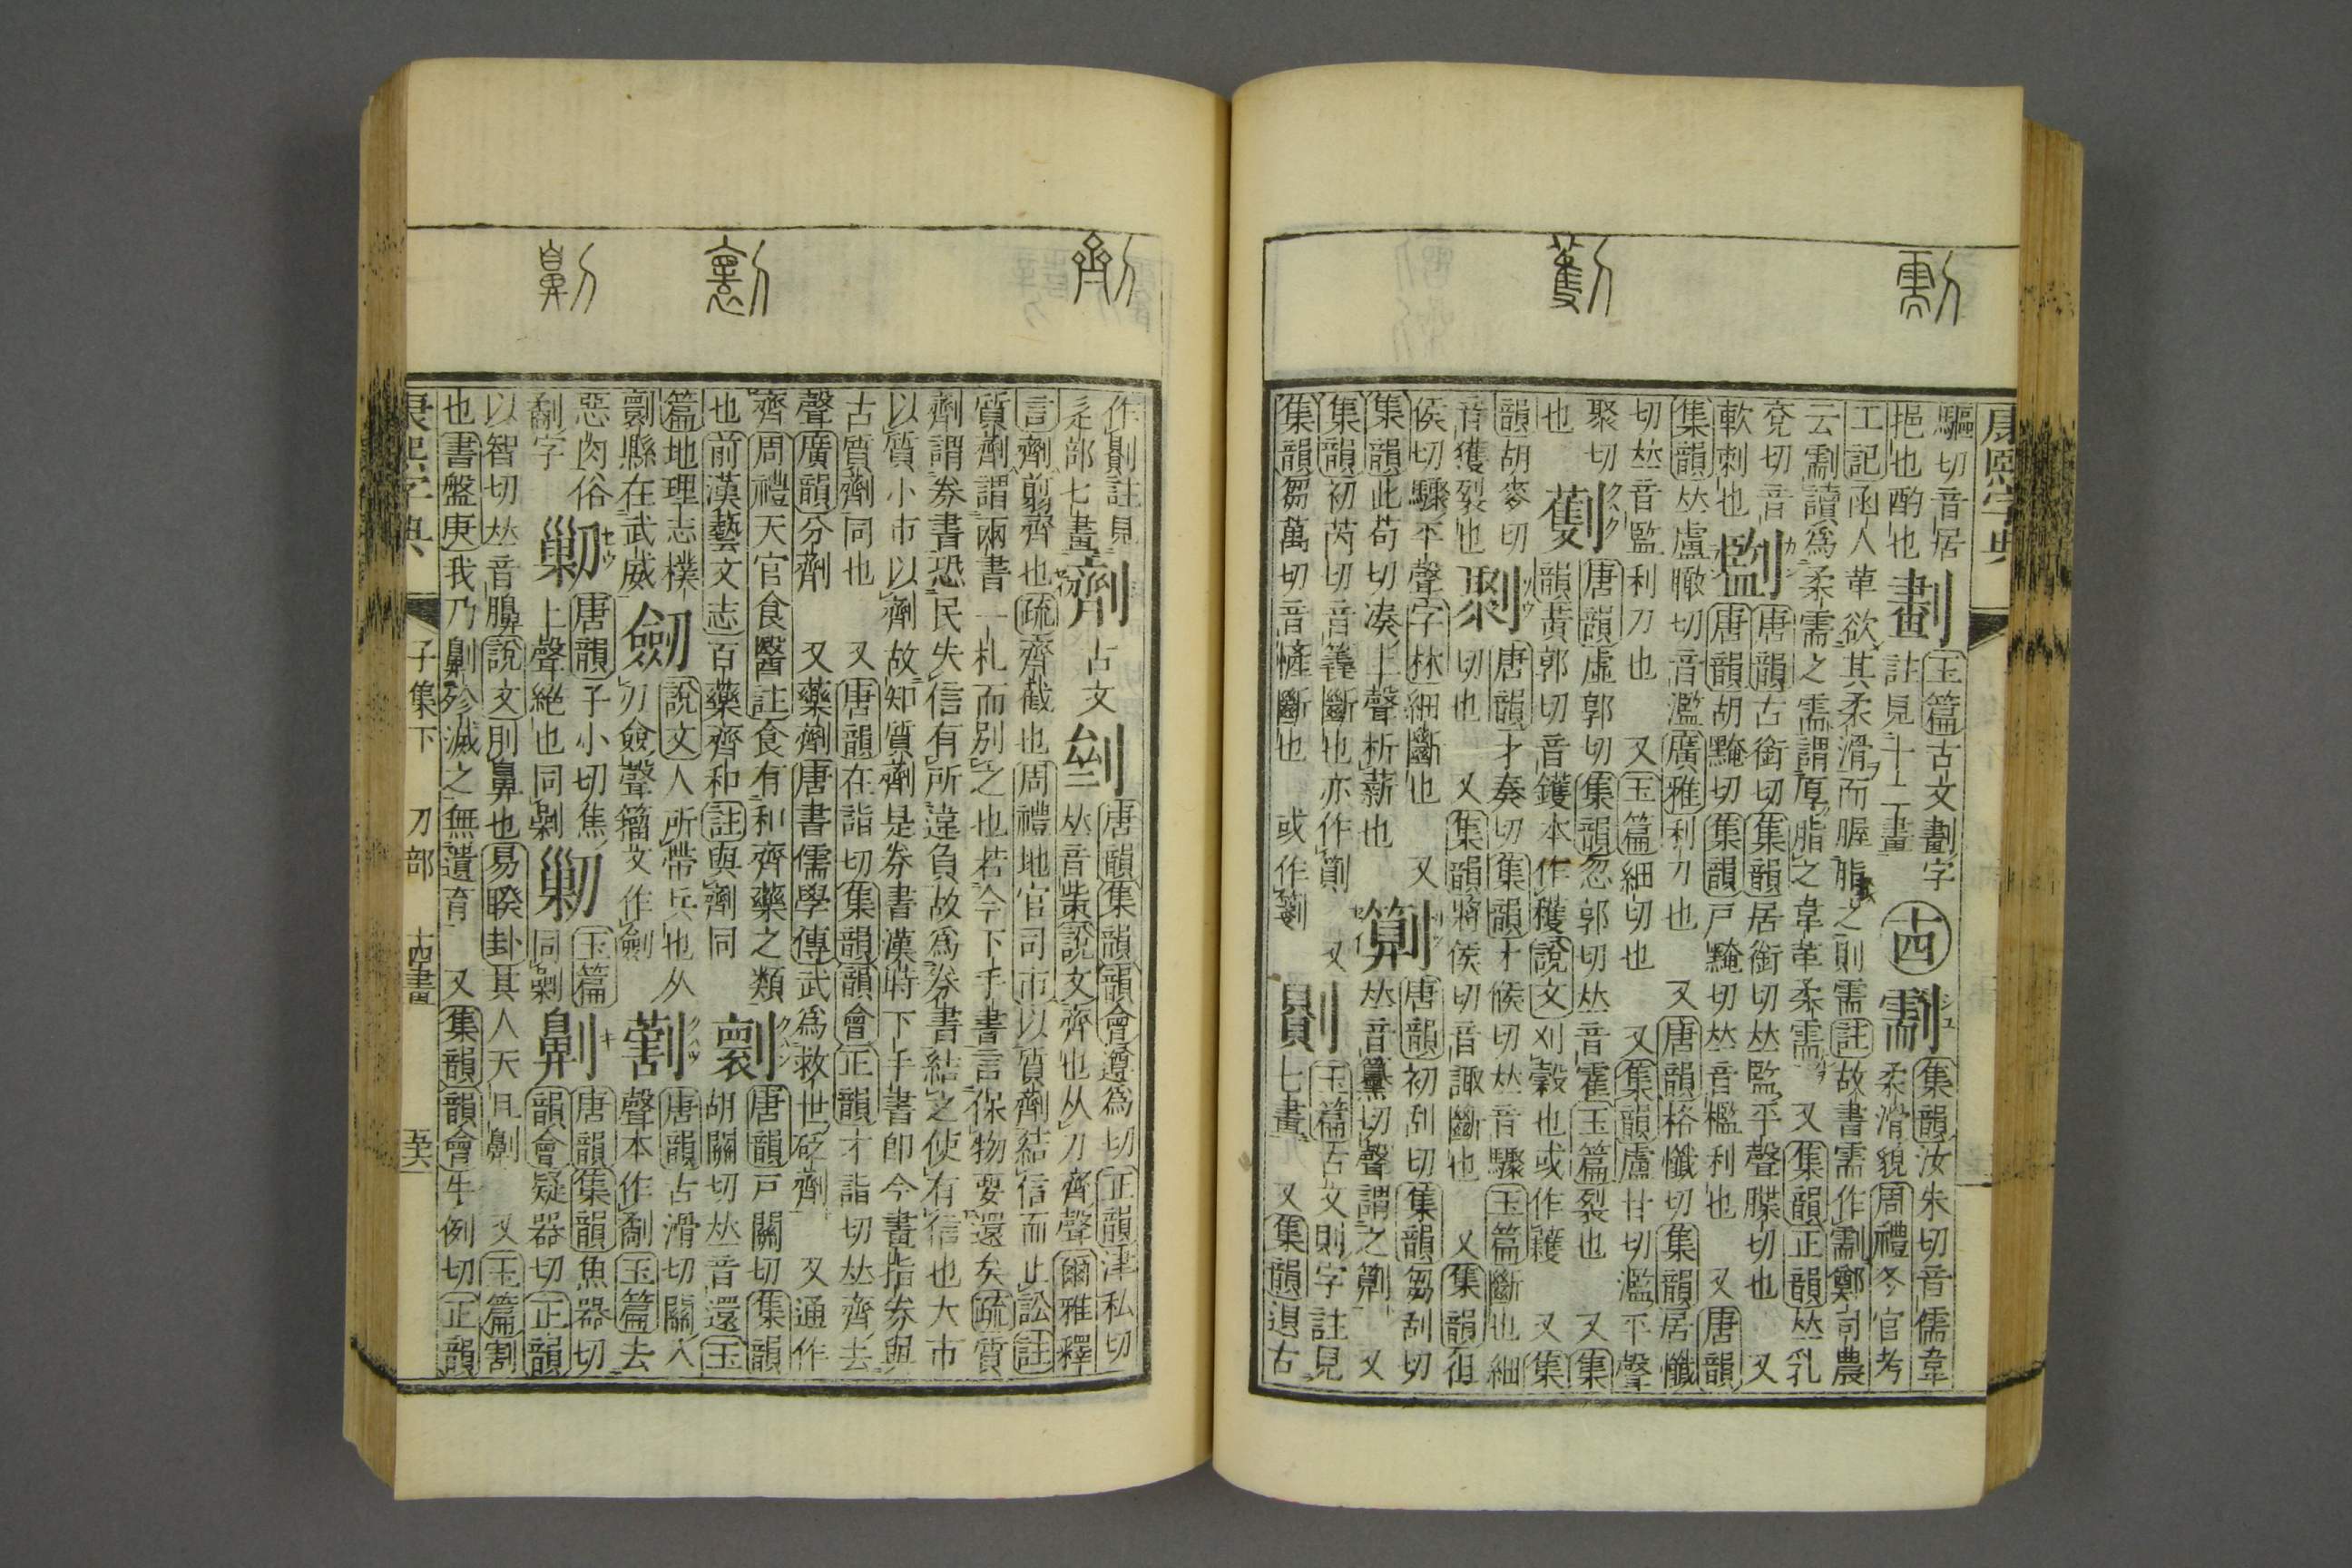 驅切音居
挹也酌也
劃
玉篇古文劃字
註見十二畫
十四
劘
集韻汝朱切音儒韋
柔滑貌周禮冬官考
工記函人革欲其柔滑而腛脂之則需註故書需作鄭司農
云讀爲柔需之需謂厚脂之韋革柔需 又集韻正韻𠀤乳
兗切音
軟刺也
唐韻古銜切集韻居銜切𠀤監平聲牒切也 又
唐韻胡黤切集韻戸黤切𠀤音檻利也 又唐韻
集韻𠀤盧瞰切音濫廣雅利刀也 又唐韻格懺切集韻居懺
切𠀤音監利刀也 又玉篇細切也 又集韻盧甘切濫平聲
聚切
也
劐
唐韻虛郭切集韻忽郭切𠀤音霍玉篇裂也 又集
韻黃郭切音鑊本作穫說文刈穀也或作 又集
韻胡麥切
音獲裂也
唐韻才奏切集韻才候切𠀤音驟玉篇斷也細
切也 又集韻將侯切音諏斷也 又集韻徂
侯切驟平聲字林細斷也 又
集韻此苟切湊上聲析薪也
唐韻初刮切集韻芻刮切
𠀤音纂切聲謂之 又
集韻初芮切音竁斷也亦作 又
集韻芻萬切音斷也 或作
玉篇古文則字註見
七畫 又集韻退古
康熙字典
作註見
辵部七畫
劑
古文
唐韻集韻韻會遵爲切正韻津私切
𠀤音說文齊也从刀齊聲爾雅釋
言劑翦齊也疏齊截也周禮地官司市以質劑結信而止訟註
質劑謂兩書一札而別之也若今下手書言保物要還矣疏質
劑謂券書恐民失信有所違負故爲券書結之使有信也大市
以質小市以劑故知質劑是券書漢時下手書卽今畫指券與
古質劑同也 又唐韻在詣切集韻韻會正韻才詣切𠀤齊去
聲廣韻分劑 又藥劑唐書儒學傳武爲救世砭劑 又通作
齊周禮天官食醫註食有和齊藥之類
也前漢藝文志百藥齊和註與劑同
唐韻戸關切集韻
胡關切𠀤音還玉
篇地理志樸
縣在武威
劒
說文人所帶兵也从
刃僉聲籀文作劍
唐韻古滑切關入
聲本作劀玉篇去
惡肉俗
劀字
唐韻子小切焦
上聲絕也同剿
玉篇
同剿
劓
唐韻集韻魚器切
韻會疑器切正韻
以智切𠀤音臲說文刖鼻也易睽卦其人天且劓 又玉篇割
也書盤庚我乃劓殄滅之無遺育 又集韻韻會牛例切正韻
康熙字典
子集下
刀部
十四畫